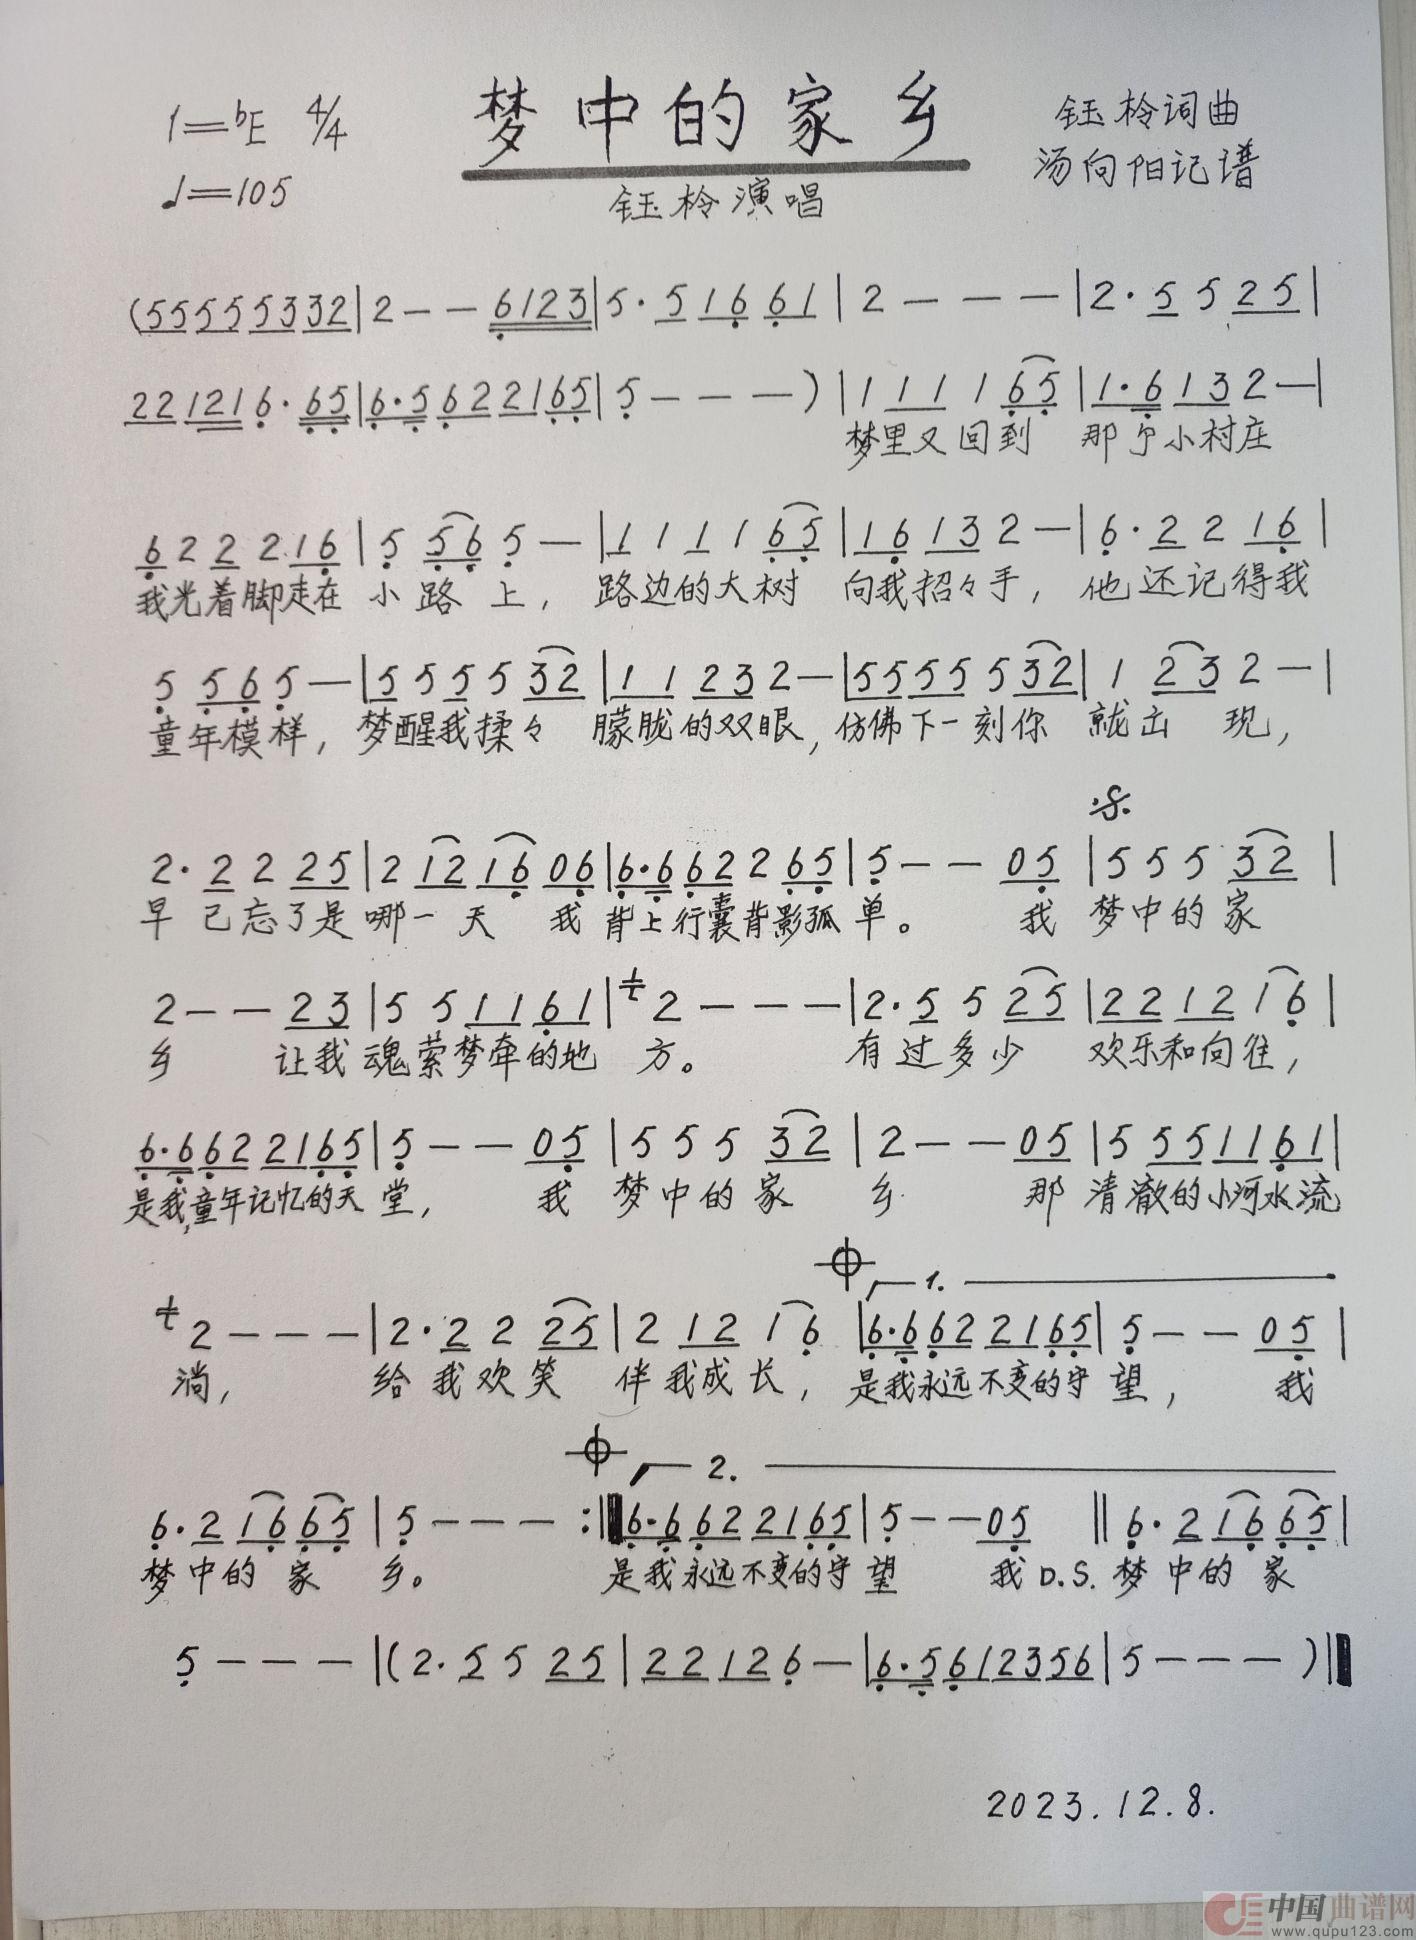 1=♭E 4/4 梦中的家乡 钰柃词曲
♩=105 钰柃演唱 汤向阳记谱
(55555332|2--6123|5·51661|2---|2·5525|
221216·65|6·5622165|5---)|111165|1·6132-|
梦里又回到 那个小村庄
622216|5565-|111165|16132-|6·2216|
我光着脚走在 小路上, 路边的大树 向我招々手, 他还记得我
5565-|555532|11232-|5555532|1232-|
童年模样, 梦醒我揉々 朦胧的双眼, 仿佛下一刻你 就出现,
2·2225|2121606|6·662265|5--05|55532|
早已忘了是 哪一天 我 背上行囊背影孤 单。 我 梦中的家
2--23|551161|2---|2·5525|221216|
乡 让我 魂萦梦牵的地 方。 有过多少 欢乐和向往,
6·6622165|5--05|55532|2--05|5551161|
是我童年记忆的天 堂, 我 梦中的家 乡 那 清澈的小河水流
1.
2---|2·2225|21216|6·6622165|5--05|
淌, 给我欢笑 伴我成长, 是我永远不变的守 望, 我
2.
6·21665|5---:||6·6622165|5--05||6·21665|
梦中的家 乡。 是我永远不变的守 望 我 D.S. 梦中的家
5---|(2·5525|22126-|6·5612356|5---)||
2023.12.8.
中国曲谱网
www.qupu123.com